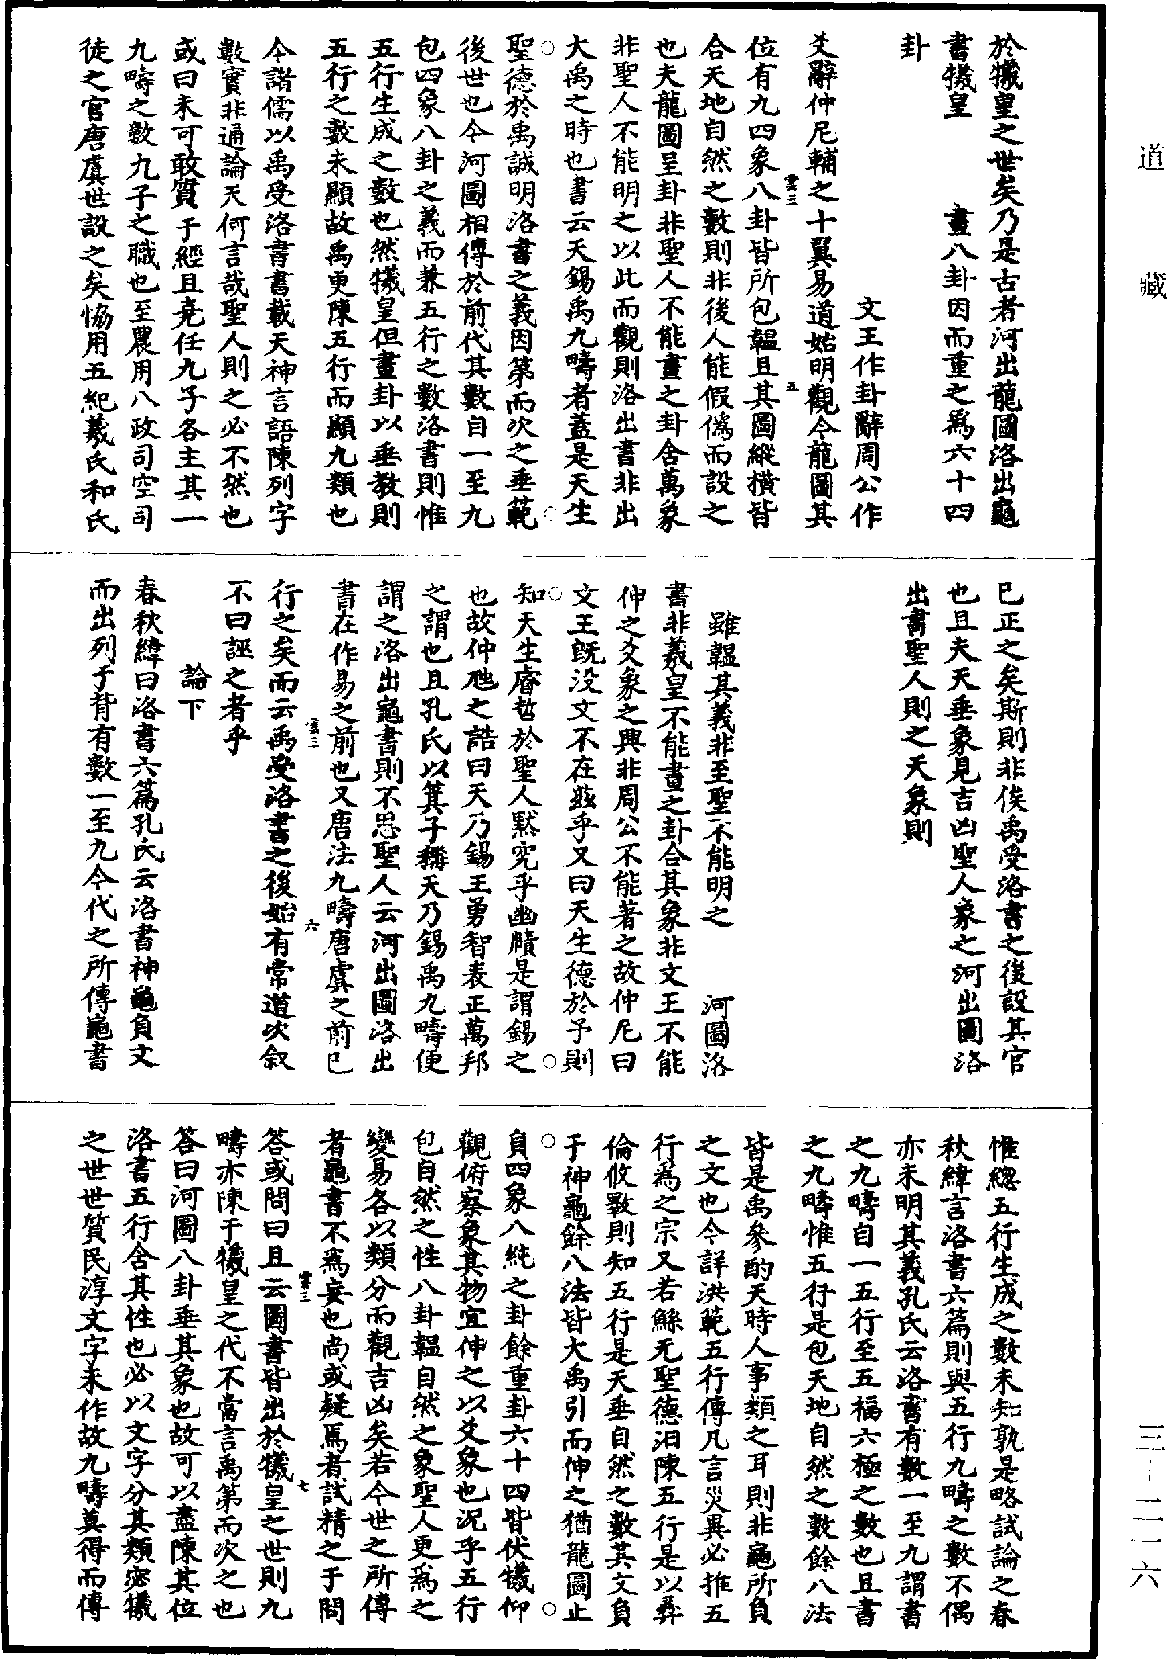 道藏
三–二一六
於犧皇之世矣乃是古者河出龍圖洛出龜
書犧皇　　畫八卦因而重之為六十四
卦
文王作卦辭周公作
爻辭仲尼輔之十翼易道始明觀今龍圖其
位有九四象八卦皆所包韞且其圖縱橫皆
雲三
五
合天地自然之數則非後人能假偽而設之
也夫龍圖呈卦非聖人不能畫之卦含萬象
非聖人不能明之以此而觀則洛出書非出
大禹之時也書云天錫禹九疇者蓋是天生
聖德於禹誠明洛書之義因第而次之垂範
後世也今河圖相傳於前代其數自一至九
包四象八卦之義而兼五行之數洛書則惟
五行生成之數也然犧皇但畫卦以垂教則
五行之數未顯故禹更陳五行而顯九類也
今諸儒以禹受洛書書載天神言語陳列字
數實非通論天何言哉聖人則之必不然也
或曰未可敢質于經且堯任九子各主其一
九疇之數九子之職也至農用八政司空司
徒之官唐虞世設之矣恊用五紀羲氏和氏
已正之矣斯則非俟禹受洛書之後設其官
也且夫天垂象見吉凶聖人象之河出圖洛
出書聖人則之天象則
雖韞其義非至聖不能明之　　河圖洛
書非羲皇不能畫之卦合其象非文王不能
伸之爻象之興非周公不能著之故仲尼曰
文王旣没文不在兹乎又曰天生德於予則
知天生睿哲於聖人默究乎幽賾是謂錫之
也故仲虺之誥曰天乃錫王勇智表正萬邦
之謂也且孔氏以箕子稱天乃錫禹九疇便
謂之洛出龜書則不思聖人云河出圖洛出
書在作易之前也又唐法九疇唐虞之前已
雲三
六
行之矣而云禹受洛書之後始有常道次叙
不曰誣之者乎
論下
春秋緯曰洛書六篇孔氏云洛書神龜負文
而出列于背有數一至九今代之所傳龜書
惟總五行生成之數未知孰是略試論之春
秋緯言洛書六篇則與五行九疇之數不偶
亦未明其義孔氏云洛書有數一至九謂書
之九疇自一五行至五福六極之數也且書
之九疇惟五行是包天地自然之數餘八法
皆是禹參酌天時人事類之耳則非龜所負
之文也今詳洪範五行傳凡言災異必推五
行為之宗又若鯀无聖德汩陳五行是以彛
倫攸斁則知五行是天垂自然之數其文負
于神龜餘八法皆大禹引而伸之猶龍圖止
負四象八純之卦餘重卦六十四皆伏犧仰
觀俯察象其物宜伸之以爻象也況乎五行
包自然之性八卦韞自然之象聖人更為之
變易各以類分而觀吉凶矣若今世之所傳
者龜書不為妄也尚或疑焉者試精之于問
雲三
七
答或問曰且云圖書皆出於犧皇之世則九
疇亦陳于犧皇之代不當言禹第而次之也
答曰河圖八卦垂其象也故可以盡陳其位
洛書五行含其性也必以文字分其類宓犧
之世世質民淳文字未作故九疇莫得而傳